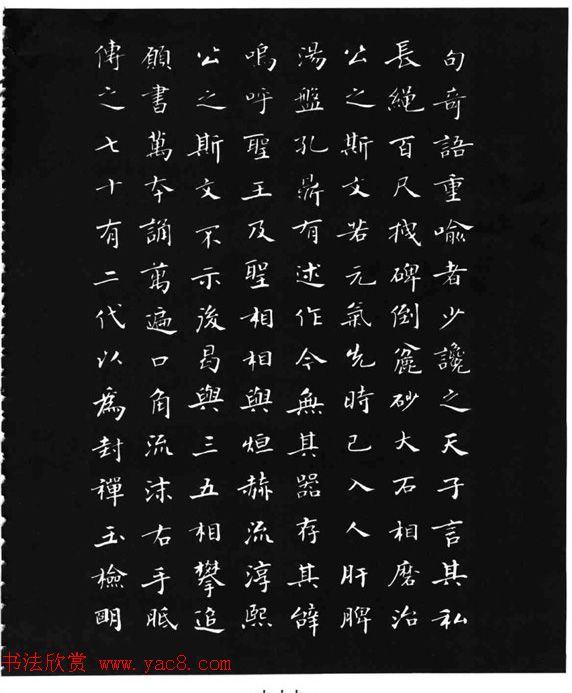 句奇語重喻者少讒之天子言其私
長繩百尺拽碑倒麄砂大石相磨治
公之斯文若元氣先時已入人肝脾
湯盤孔鼎有述作今無其器存其辭
嗚呼聖王及聖相相與烜赫流淳熙
公之斯文不示後曷與三五相攀追
願書萬本誦萬遍口角流沫右手胝
傳之七十有二代以爲封禪玉檢明
书法欣赏 www.yac8.com